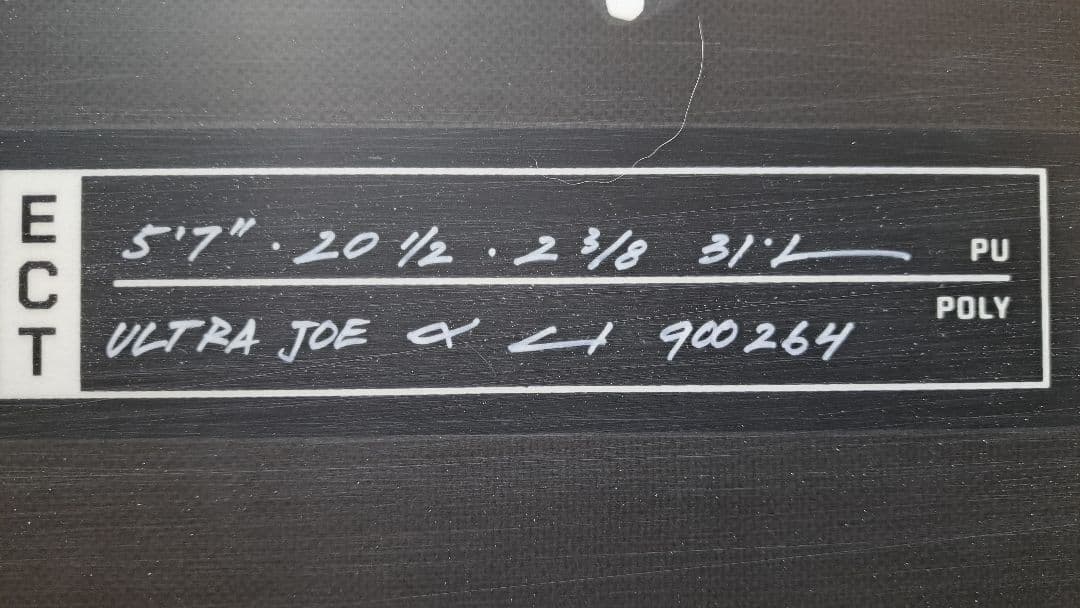 ECT
5'7" · 20 1/2 · 2 3/8 31·L
PU
ULTRA JOE α 900264
POLY